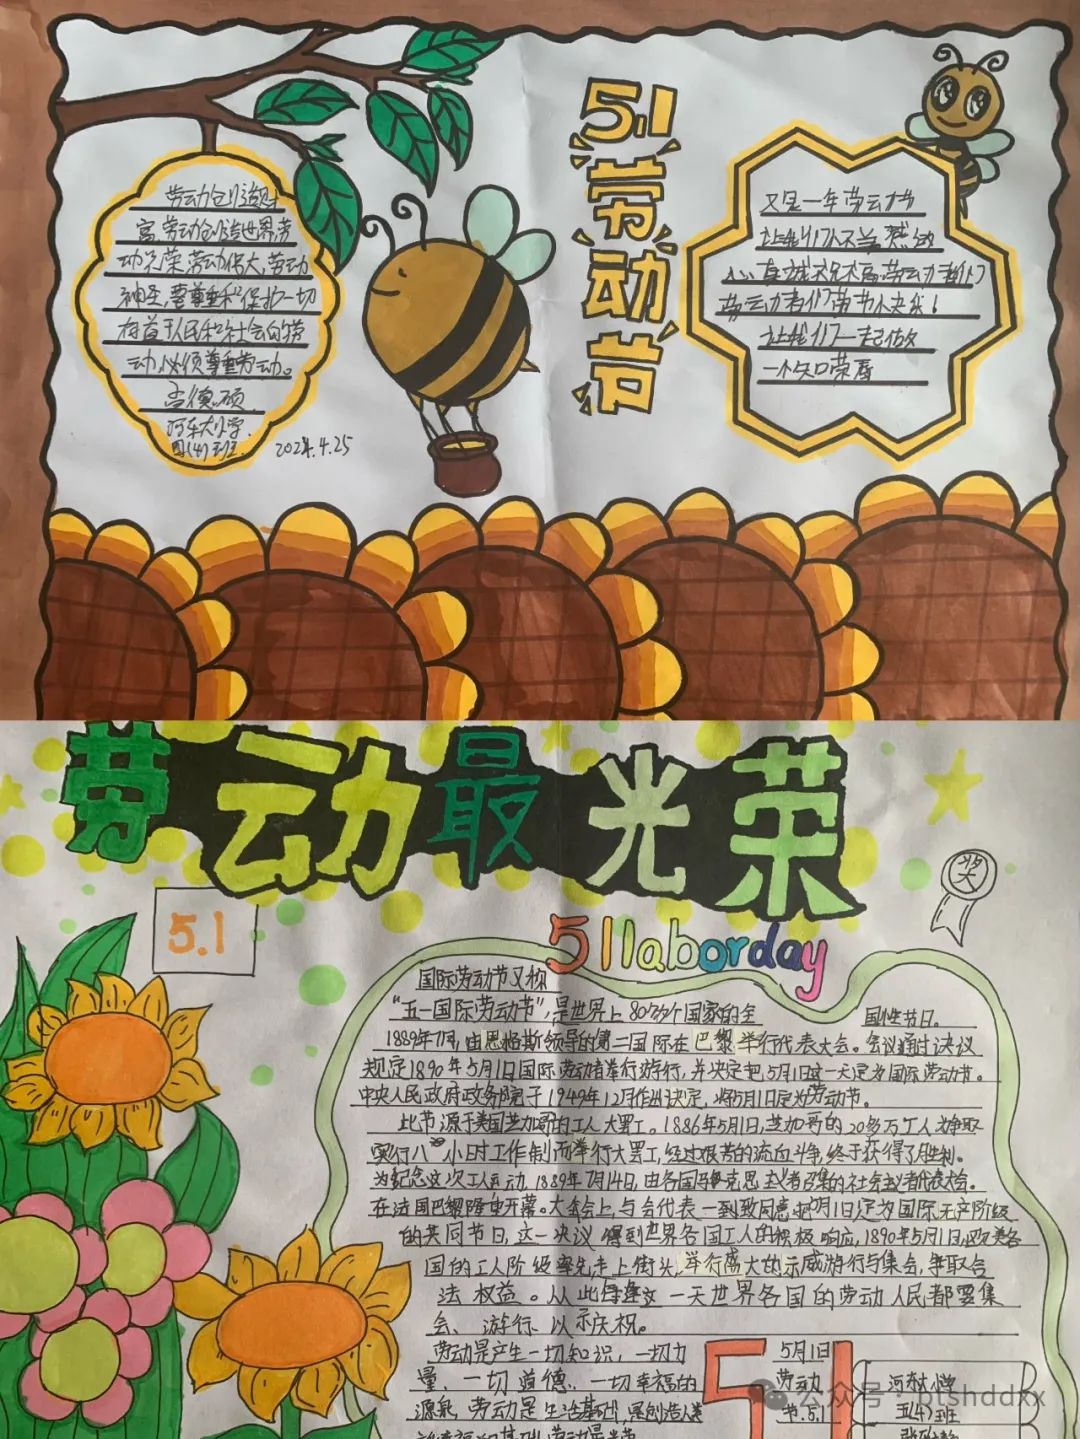 5.1
劳动节
劳动创造财
富,劳动创造世界,劳
动光荣,劳动伟大,劳动
神圣,要尊重和保护一切
有益于人民和社会的劳
动,必须尊重劳动。
河东大小学
四(4)班
2024.4.25
又是一年劳动节
让我们不
心真诚祝福劳动者们
劳动者们节节快乐!
让我们一起做
一个知荣辱
劳动最光荣
5.1
奖
51laborday
国际劳动节又称
“五一国际劳动节”,是世界上80多个国家的全
国性节日。
1889年7月,由恩格斯领导的第二国际在巴黎举行代表大会。会议通过决议
规定1890年5月1日国际劳动者举行游行,并决定把5月1日这一天定为国际劳动节。
中央人民政府政务院于1949年12月作出决定,将5月1日定为劳动节。
此节源于美国芝加哥的工人大罢工。1886年5月1日,芝加哥的20多万工人为争取
实行八小时工作制而举行大罢工,经过艰苦的流血斗争,终于获得了胜利。
为纪念这次工人运动,1889年7月14日,由各国马克思主义者召集的社会主义者代表大会。
在法国巴黎隆重开幕。大会上,与会代表一致同意把5月1日定为国际无产阶级
的共同节日,这一决议得到世界各国工人的积极响应,1890年5月1日,欧美各
国的工人阶级率先走上街头,举行盛大的示威游行与集会,争取合
法权益。从此每逢这一天世界各国的劳动人民都要集
会、游行,以示庆祝。
劳动是产生一切知识,一切力
量、一切道德、一切幸福的
源泉,劳动是生活基础,是创造人类
51
5月1日
劳动
节.5.1
五(4)班
公众号·ptshddxx